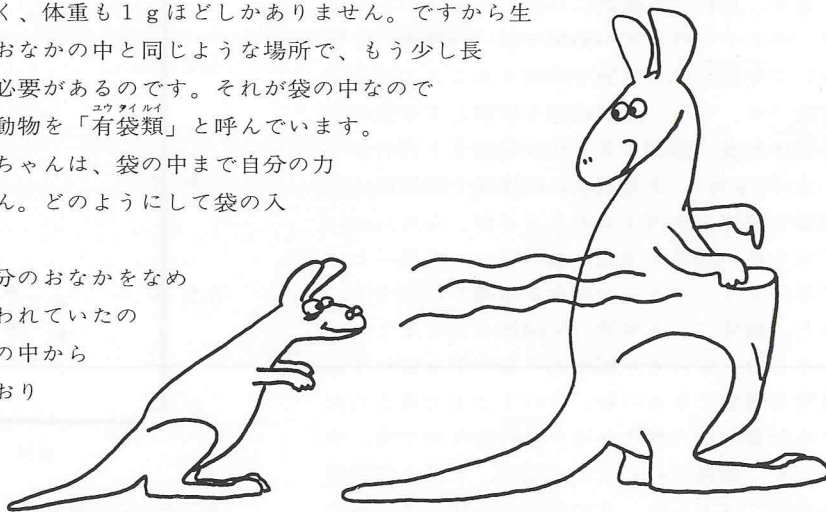 く、体重も１ｇほどしかありません。ですから生
おなかの中と同じような場所で、もう少し長
必要があるのです。それが袋の中なので
ユウタイルイ
動物を「有袋類」と呼んでいます。
ちゃんは、袋の中まで自分の力
ん。どのようにして袋の入
分のおなかをなめ
われていたの
の中から
おり